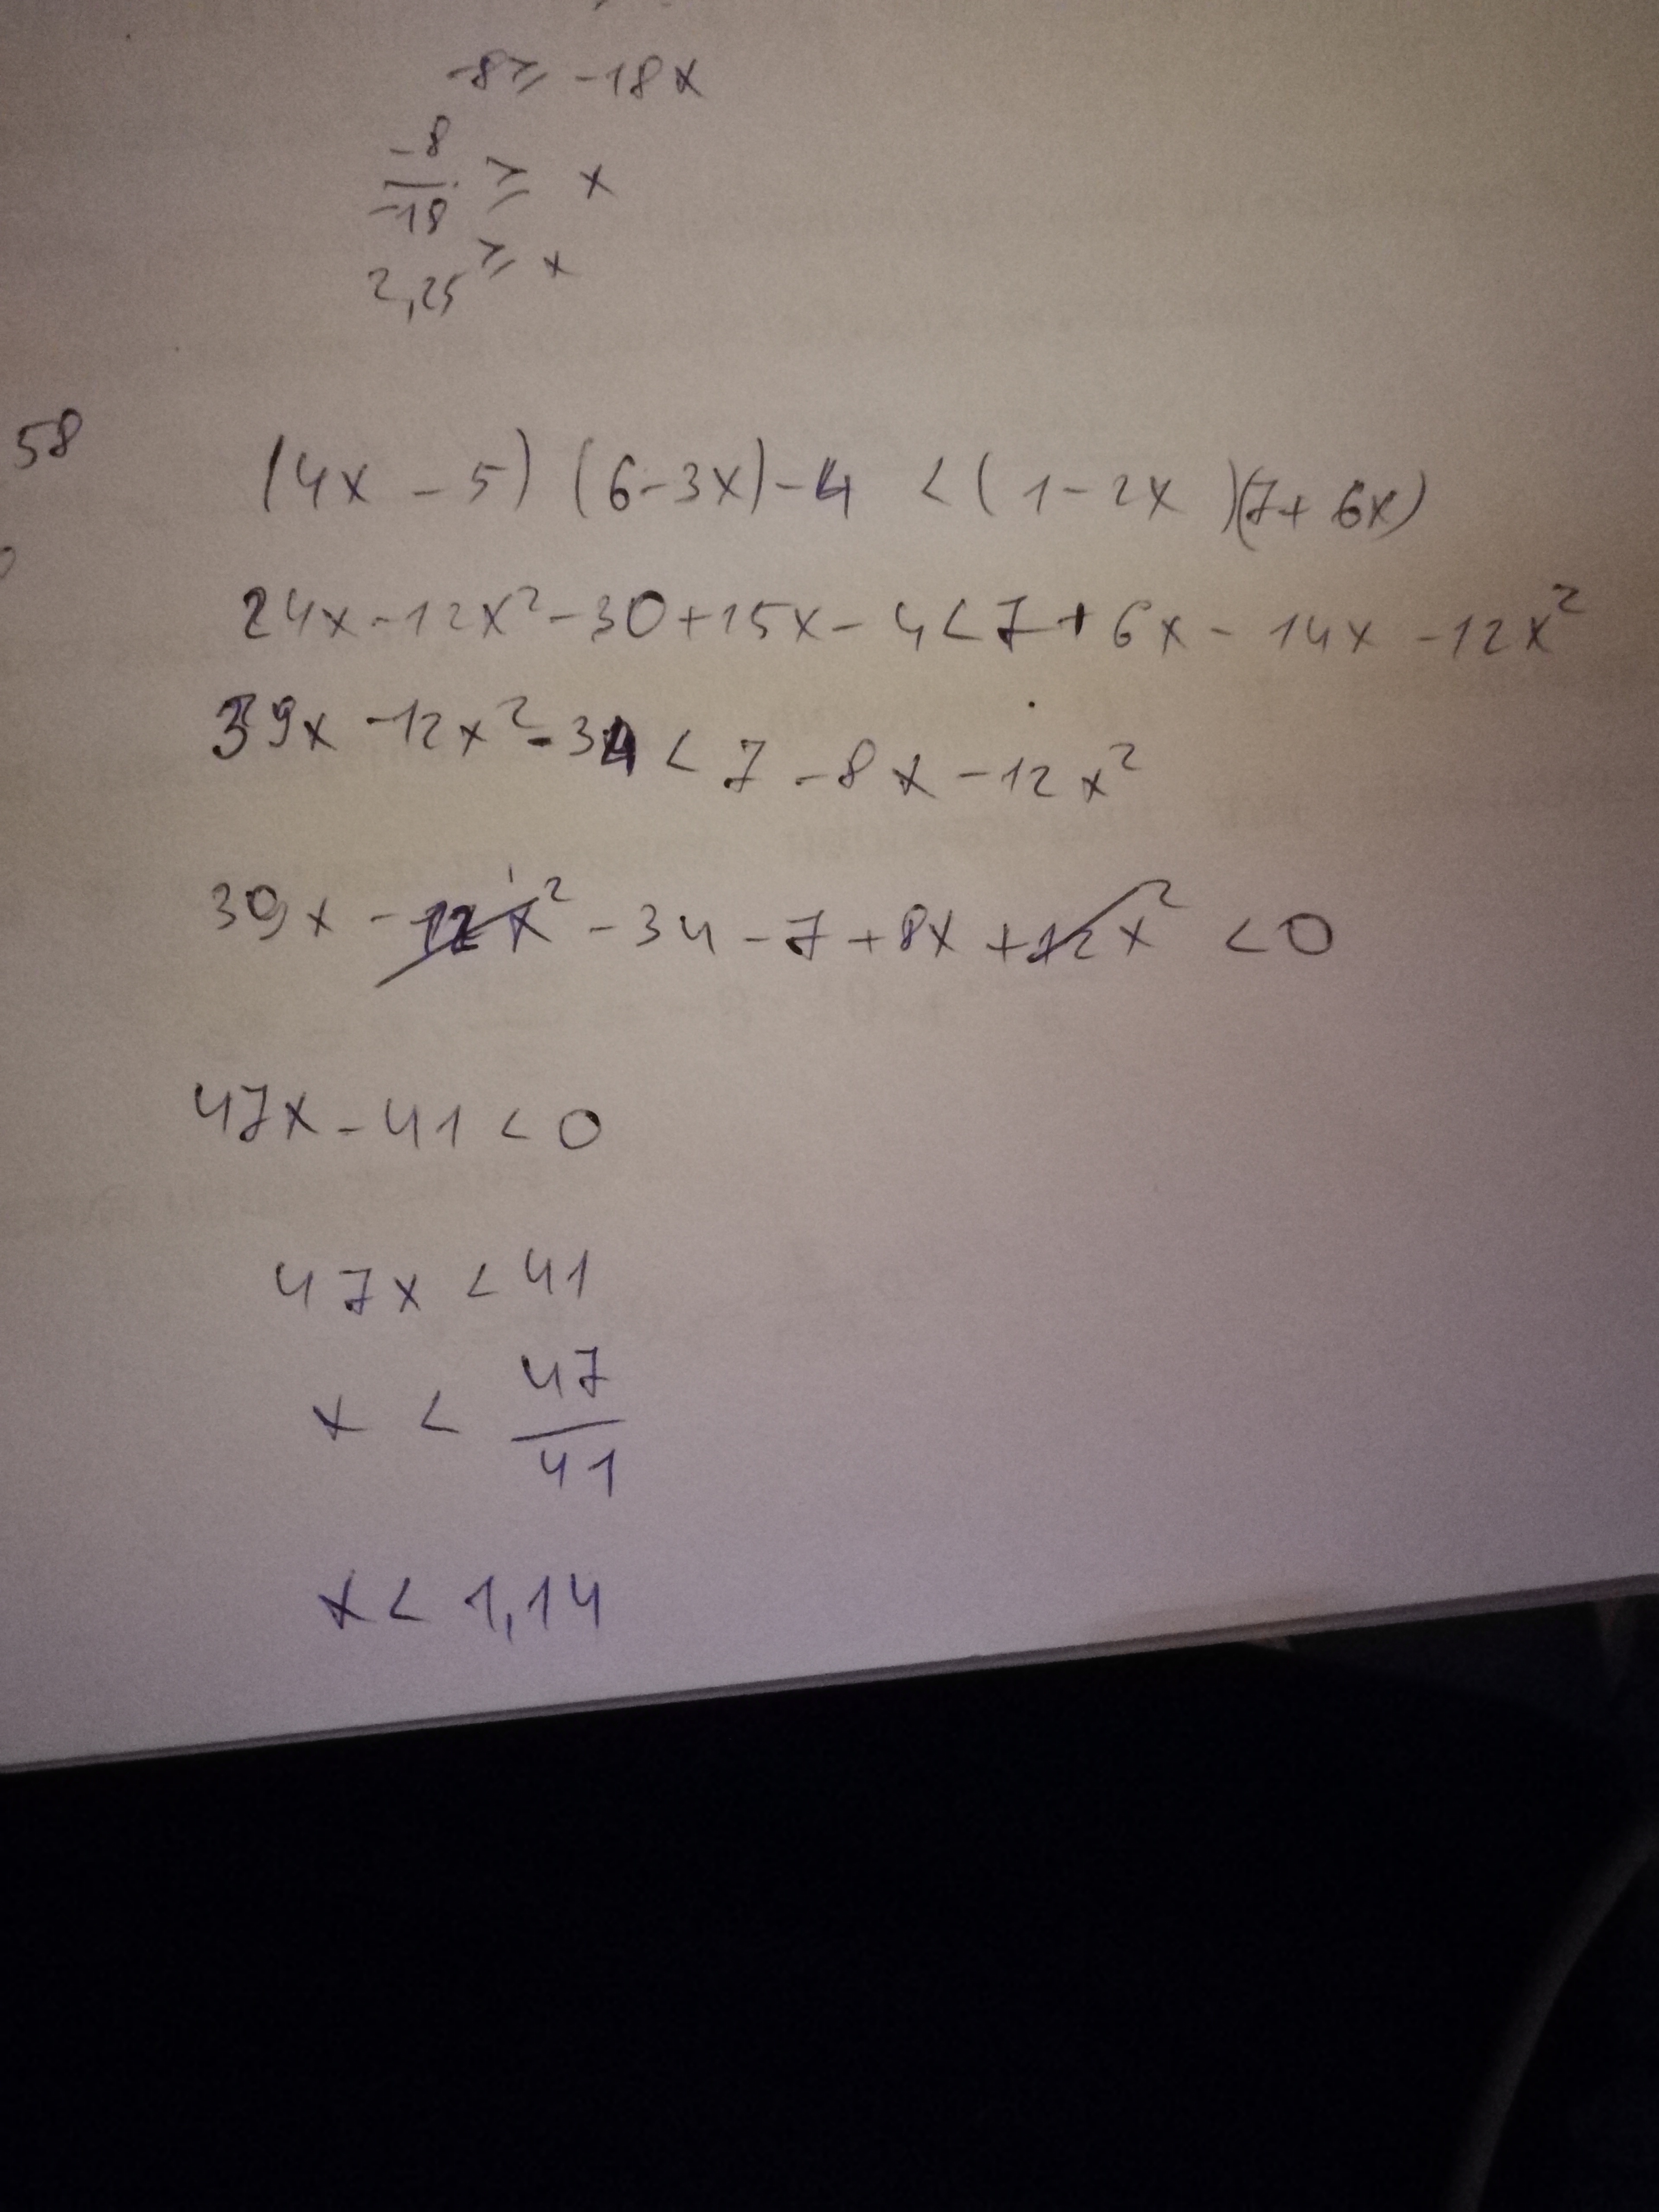 -8 ≥ -18x
-8/-18 ≥ x
2,25 ≥ x
58
(4x - 5) (6-3x) - 4 < (1 - 2x)(7 + 6x)
24x - 12x² - 30 + 15x - 4 < 7 + 6x - 14x - 12x²
39x - 12x² - 34 < 7 - 8x - 12x²
39x - 12x² - 34 - 7 + 8x + 12x² < 0
47x - 41 < 0
47x < 41
x < 47/41
x < 1,14